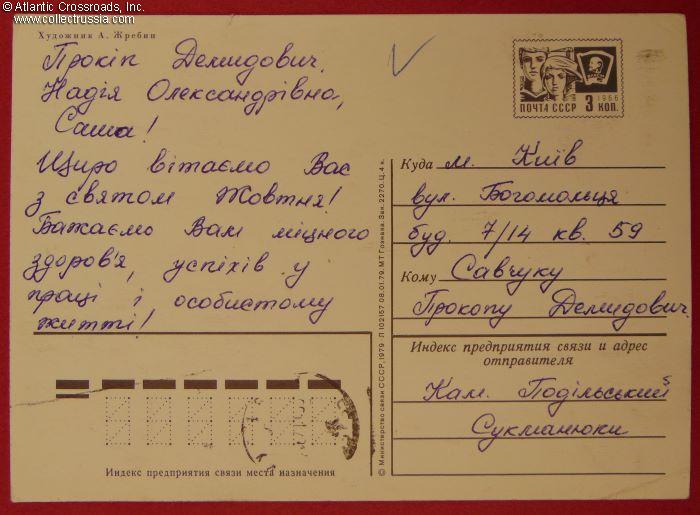 © Atlantic Crossroads, Inc.
www.collectrussia.com
Художник А. Жребин
Прокіп Демидович.
Надія Олександрівна,
Саша!
Щиро вітаємо Вас
з святом Жовтня!
Бажаємо Вам міцного
здоров'я, успіхів у
праці і особистому
житті!
1966
ПОЧТА СССР 3 КОП.
Куда м. Київ
вул. Богомольця
буд. 7/14 кв. 59
Кому Савчуку
Прокопу Демидович.
Индекс предприятия связи и адрес
отправителя
Кам. Подільський
Сукманюки
© Министерство связи СССР, 1979 Л 102157.08.01.79. МТ Гознака. Зак. 2270. Ц. 4 к.
Индекс предприятия связи места назначения